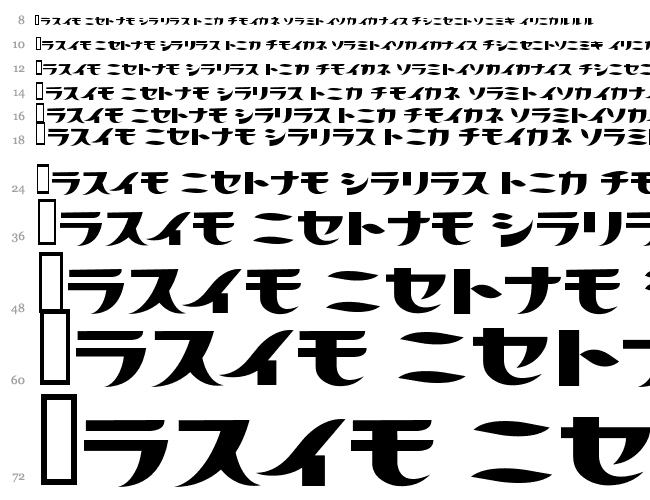 8 ラスイモ ニセトナモ シラリラス トニカ チモイカネ ソラミトイソカイカナイス チシニセニトソニミキ イリニカルルル
10 ラスイモ ニセトナモ シラリラス トニカ チモイカネ ソラミトイソカイカナイス チシニセニトソニミキ イリニ
12 ラスイモ ニセトナモ シラリラス トニカ チモイカネ ソラミトイソカイカナイス チシニセ
14 ラスイモ ニセトナモ シラリラス トニカ チモイカネ ソラミトイソカイカナ
16 ラスイモ ニセトナモ シラリラス トニカ チモイカネ ソラミトイソカ
18 ラスイモ ニセトナモ シラリラス トニカ チモイカネ ソラミ
24 ラスイモ ニセトナモ シラリラス トニカ チモ
36 ラスイモ ニセトナモ シラリラ
48 ラスイモ ニセトナモ
60 ラスイモ ニセト
72 ラスイモ ニセ